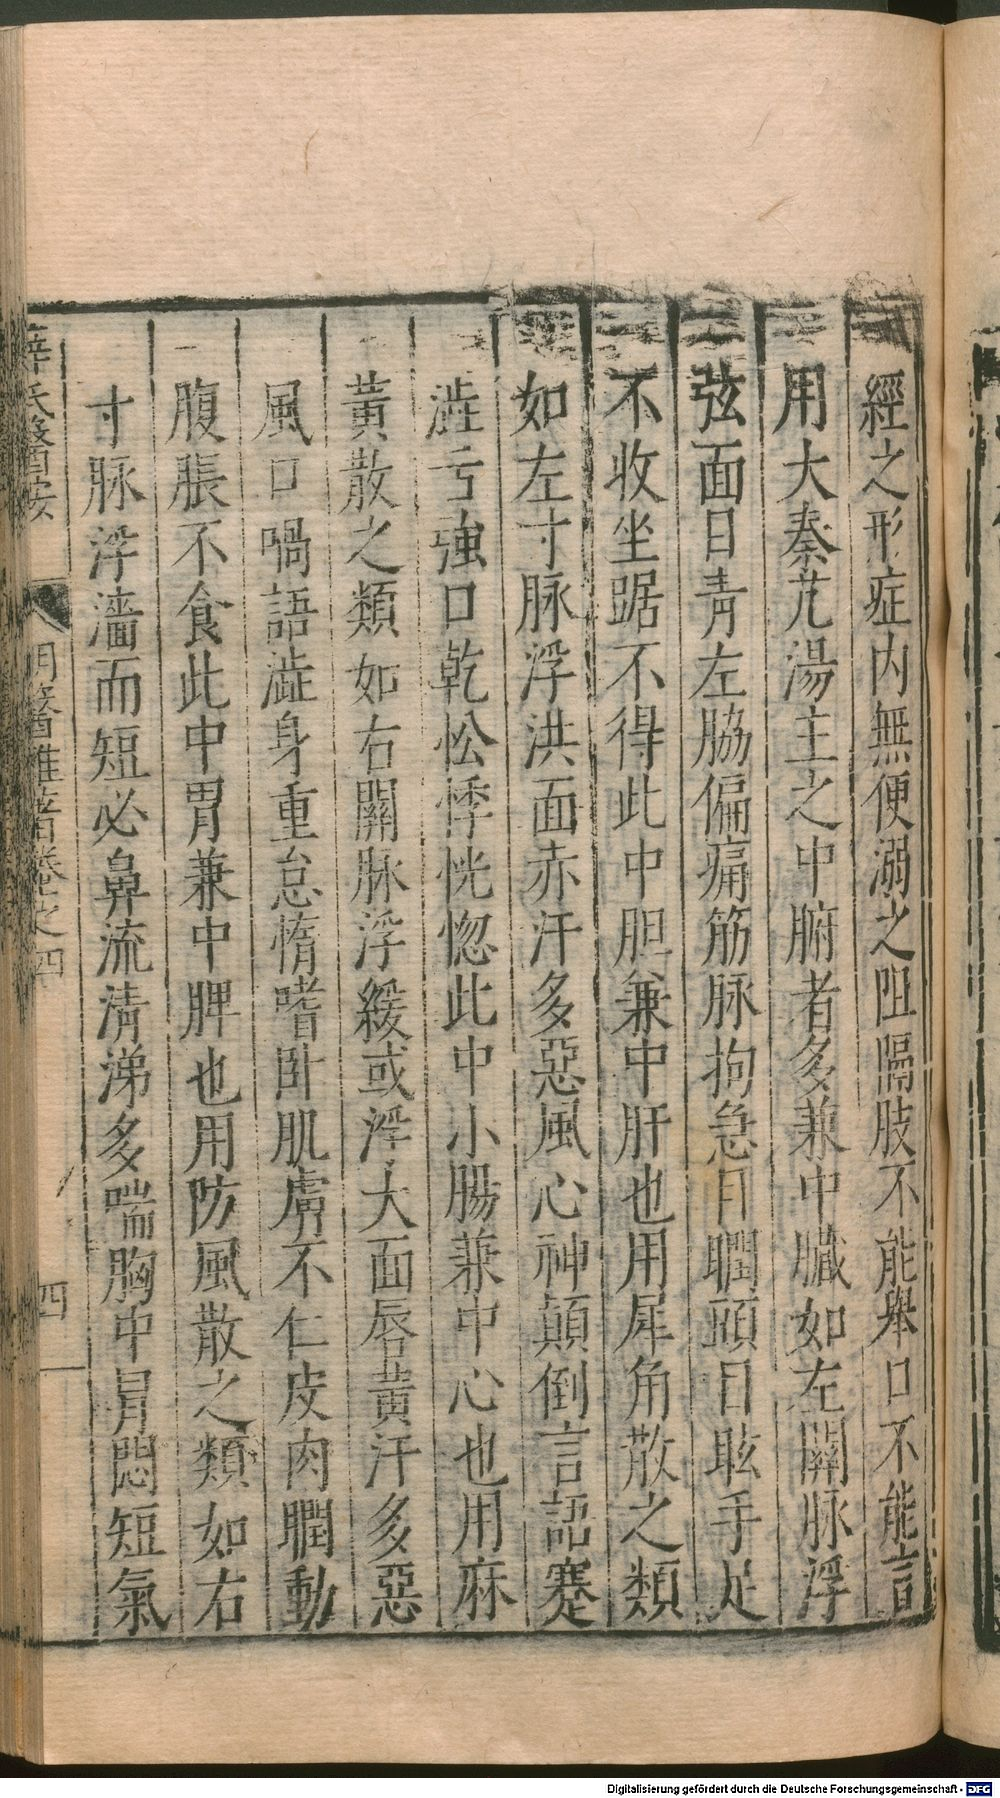 經之形症内無便溺之阻隔肢不能舉口不能言
用大秦艽湯主之中腑者多兼中臟如左關脉浮
弦面目青左脇偏痛筋脉拘急目瞤頭目眩手足
不收坐踞不得此中胆兼中肝也用犀角散之類
如左寸脉浮洪面赤汗多惡風心神顛倒言語蹇
澁舌強口乾忪悸恍惚此中小腸兼中心也用麻
黃散之類如右關脉浮緩或浮大面唇黃汗多惡
風口喎語澁身重怠惰嗜卧肌膚不仁皮肉瞤動
腹脹不食此中胃兼中脾也用防風散之類如右
寸脉浮濇而短必鼻流清涕多喘胸中冒悶短氣
薛氏醫案 明醫雜著卷之四 四
Digitalisierung gefördert durch die Deutsche Forschungsgemeinschaft - DFG